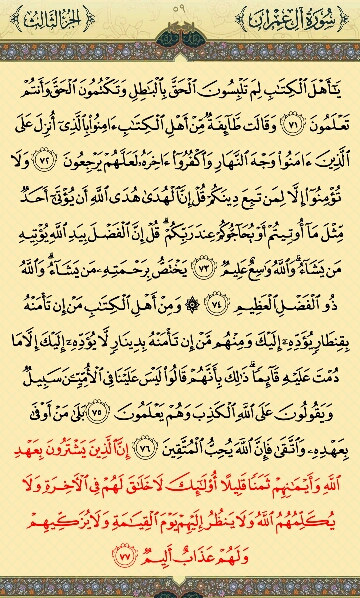 سُورَةُ آلِ عِمْرَان ٥٩ الجُزءُ الثَّالِث
يَـٰٓأَهْلَ ٱلْكِتَـٰبِ لِمَ تَلْبِسُونَ ٱلْحَقَّ بِٱلْبَـٰطِلِ وَتَكْتُمُونَ ٱلْحَقَّ وَأَنتُمْ
تَعْلَمُونَ ﴿٧١﴾ وَقَالَت طَّآئِفَةٌ مِّنْ أَهْلِ ٱلْكِتَـٰبِ ءَامِنُوا۟ بِٱلَّذِىٓ أُنزِلَ عَلَى
ٱلَّذِينَ ءَامَنُوا۟ وَجْهَ ٱلنَّهَارِ وَٱكْفُرُوٓا۟ ءَاخِرَهُۥ لَعَلَّهُمْ يَرْجِعُونَ ﴿٧٢﴾ وَلَا
تُؤْمِنُوٓا۟ إِلَّا لِمَن تَبِعَ دِينَكُمْ قُلْ إِنَّ ٱلْهُدَىٰ هُدَى ٱللَّهِ أَن يُؤْتَىٰٓ أَحَدٌ
مِّثْلَ مَآ أُوتِيتُمْ أَوْ يُحَآجُّوكُمْ عِندَ رَبِّكُمْ ۗ قُلْ إِنَّ ٱلْفَضْلَ بِيَدِ ٱللَّهِ يُؤْتِيهِ
مَن يَشَآءُ ۗ وَٱللَّهُ وَٰسِعٌ عَلِيمٌ ﴿٧٣﴾ يَخْتَصُّ بِرَحْمَتِهِۦ مَن يَشَآءُ ۗ وَٱللَّهُ
ذُو ٱلْفَضْلِ ٱلْعَظِيمِ ﴿٧٤﴾ ۞ وَمِنْ أَهْلِ ٱلْكِتَـٰبِ مَنْ إِن تَأْمَنْهُ
بِقِنطَارٍ يُؤَدِّهِۦٓ إِلَيْكَ وَمِنْهُم مَّنْ إِن تَأْمَنْهُ بِدِينَارٍ لَّا يُؤَدِّهِۦٓ إِلَيْكَ إِلَّا مَا
دُمْتَ عَلَيْهِ قَآئِمًا ۗ ذَٰلِكَ بِأَنَّهُمْ قَالُوا۟ لَيْسَ عَلَيْنَا فِى ٱلْأُمِّيِّـۧنَ سَبِيلٌ
وَيَقُولُونَ عَلَى ٱللَّهِ ٱلْكَذِبَ وَهُمْ يَعْلَمُونَ ﴿٧٥﴾ بَلَىٰ مَنْ أَوْفَىٰ
بِعَهْدِهِۦ وَٱتَّقَىٰ فَإِنَّ ٱللَّهَ يُحِبُّ ٱلْمُتَّقِينَ ﴿٧٦﴾ إِنَّ ٱلَّذِينَ يَشْتَرُونَ بِعَهْدِ
ٱللَّهِ وَأَيْمَـٰنِهِمْ ثَمَنًا قَلِيلًا أُو۟لَـٰٓئِكَ لَا خَلَـٰقَ لَهُمْ فِى ٱلْـَٔاخِرَةِ وَلَا
يُكَلِّمُهُمُ ٱللَّهُ وَلَا يَنظُرُ إِلَيْهِمْ يَوْمَ ٱلْقِيَـٰمَةِ وَلَا يُزَكِّيهِمْ
وَلَهُمْ عَذَابٌ أَلِيمٌ ﴿٧٧﴾